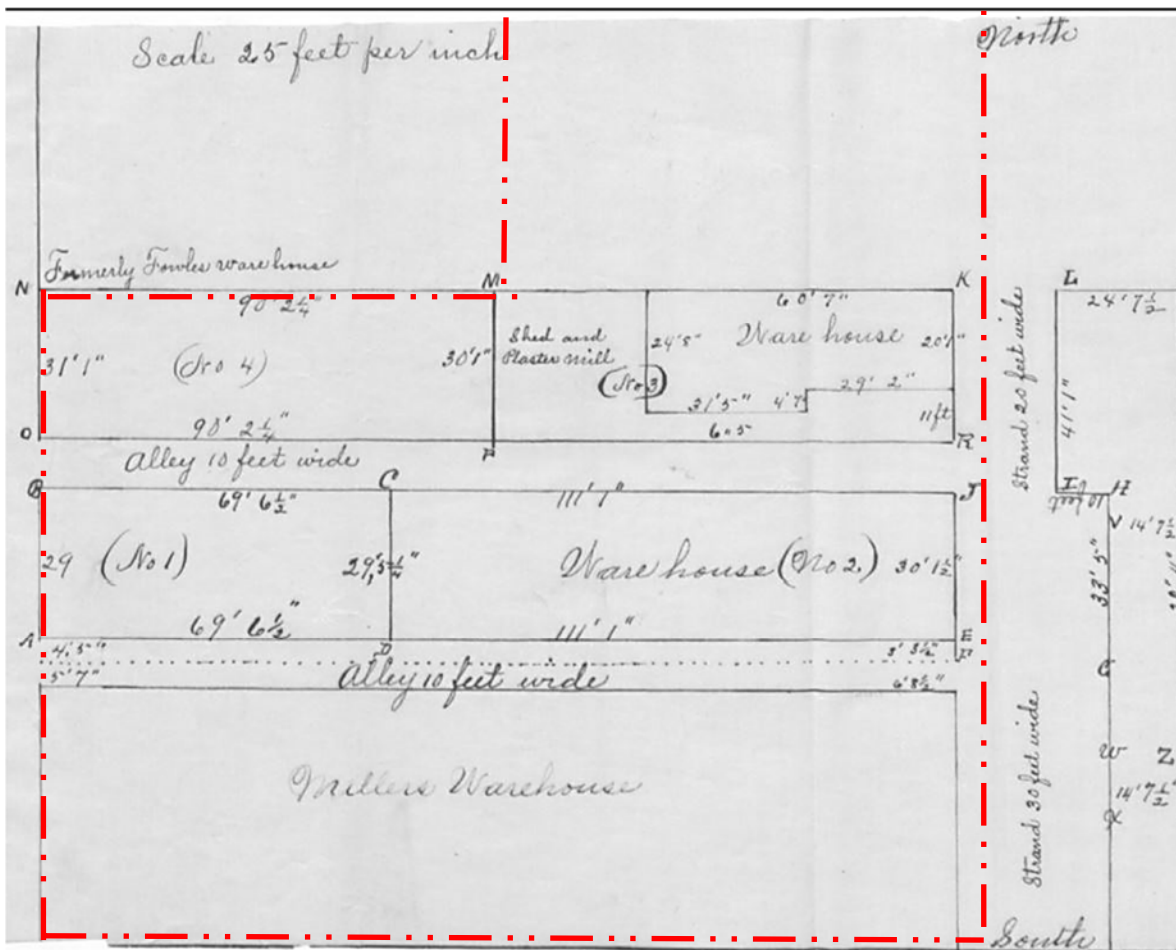 Scale 25 feet per inch
North
Formerly Fowles warehouse
N
M
K
L
90' 2¼"
60' 7"
24' 7½
31' 1"
(No 4)
30'1"
Shed and
Plaster mill
(No 3)
24'8"
Ware house
20'1"
31'5"
4'7"
29' 2"
11 ft
Strand 20 feet wide
41' 1"
90' 2¼"
60.5
O
P
R
Alley 10 feet wide
C
J
I
H
10 feet
69' 6½"
111' 1"
V
14' 7½
29
(No 1)
29,5¼"
Ware house (No 2.)
30' 1½"
33' 5"
69' 6½"
111' 1"
D
E
F
4.5"
3' 3½"
5'7"
Alley 10 feet wide
6'3½"
Strand 30 feet wide
W
Z
14' 7½"
X
Millers Warehouse
South